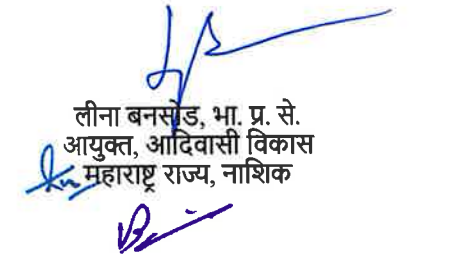 लीना बनसोड, भा. प्र. से.
आयुक्त, आदिवासी विकास
महाराष्ट्र राज्य, नाशिक